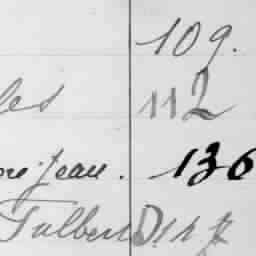 109.
les 112
re-Jean. 136
Talbert